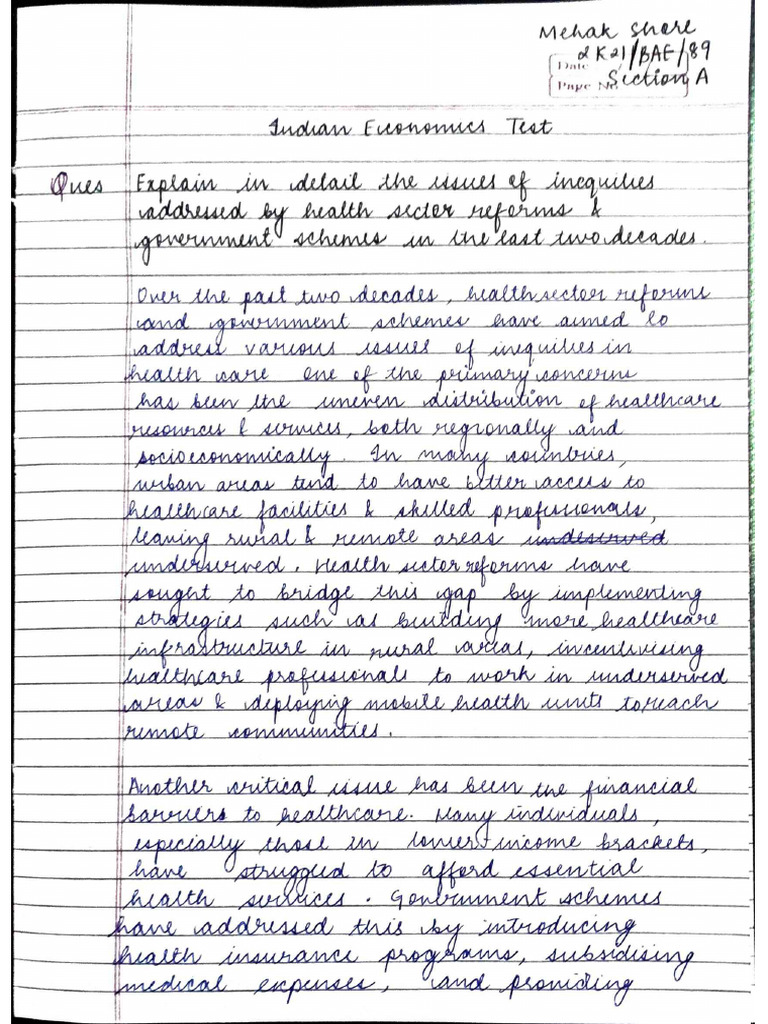 Mehak Shore
2K21/BAE/89
Date
Page No. Section A
Indian Economics Test
Ques Explain in detail the issues of inequities
addressed by health sector reforms &
government schemes in the last two decades.
Over the past two decades, health sector reforms
and government schemes have aimed to
address various issues of inequities in
health care One of the primary concerns
has been the uneven distribution of healthcare
resources & services, both regionally and
socioeconomically. In many countries,
urban areas tend to have better access to
healthcare facilities & skilled professionals,
leaving rural & remote areas undeserved
underserved. Health sector reforms have
sought to bridge this gap by implementing
strategies such as building more healthcare
infrastructure in rural areas, incentivising
healthcare professionals to work in underserved
areas & deploying mobile health units to reach
remote communities.
Another critical issue has been the financial
barriers to healthcare. Many individuals,
especially those in lower-income brackets,
have struggled to afford essential
health services. Government schemes
have addressed this by introducing
health insurance programs, subsidising
medical expenses, and providing